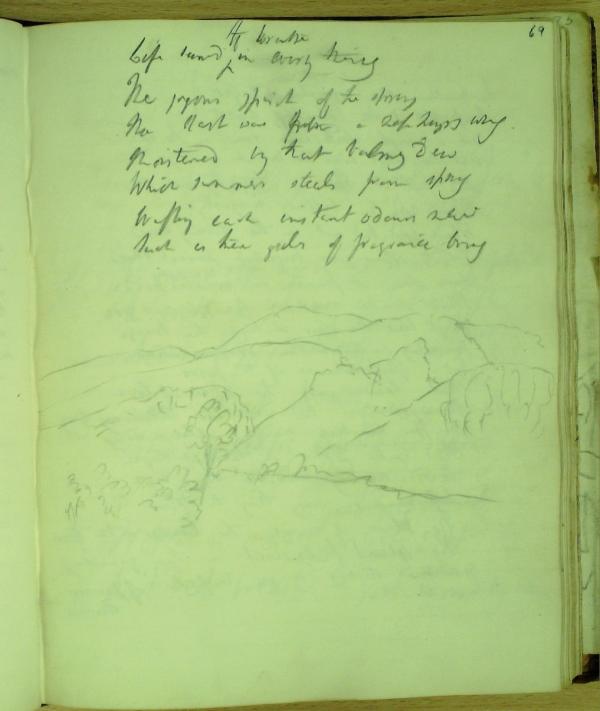 69
It breathe
Life in every thing
The joyous spirit of the spring
The a zephyrs wing
Moistened by that balmy Dew
Which summer steals from spring
Wafting each instant odours new
Such as these gales of fragrance bring